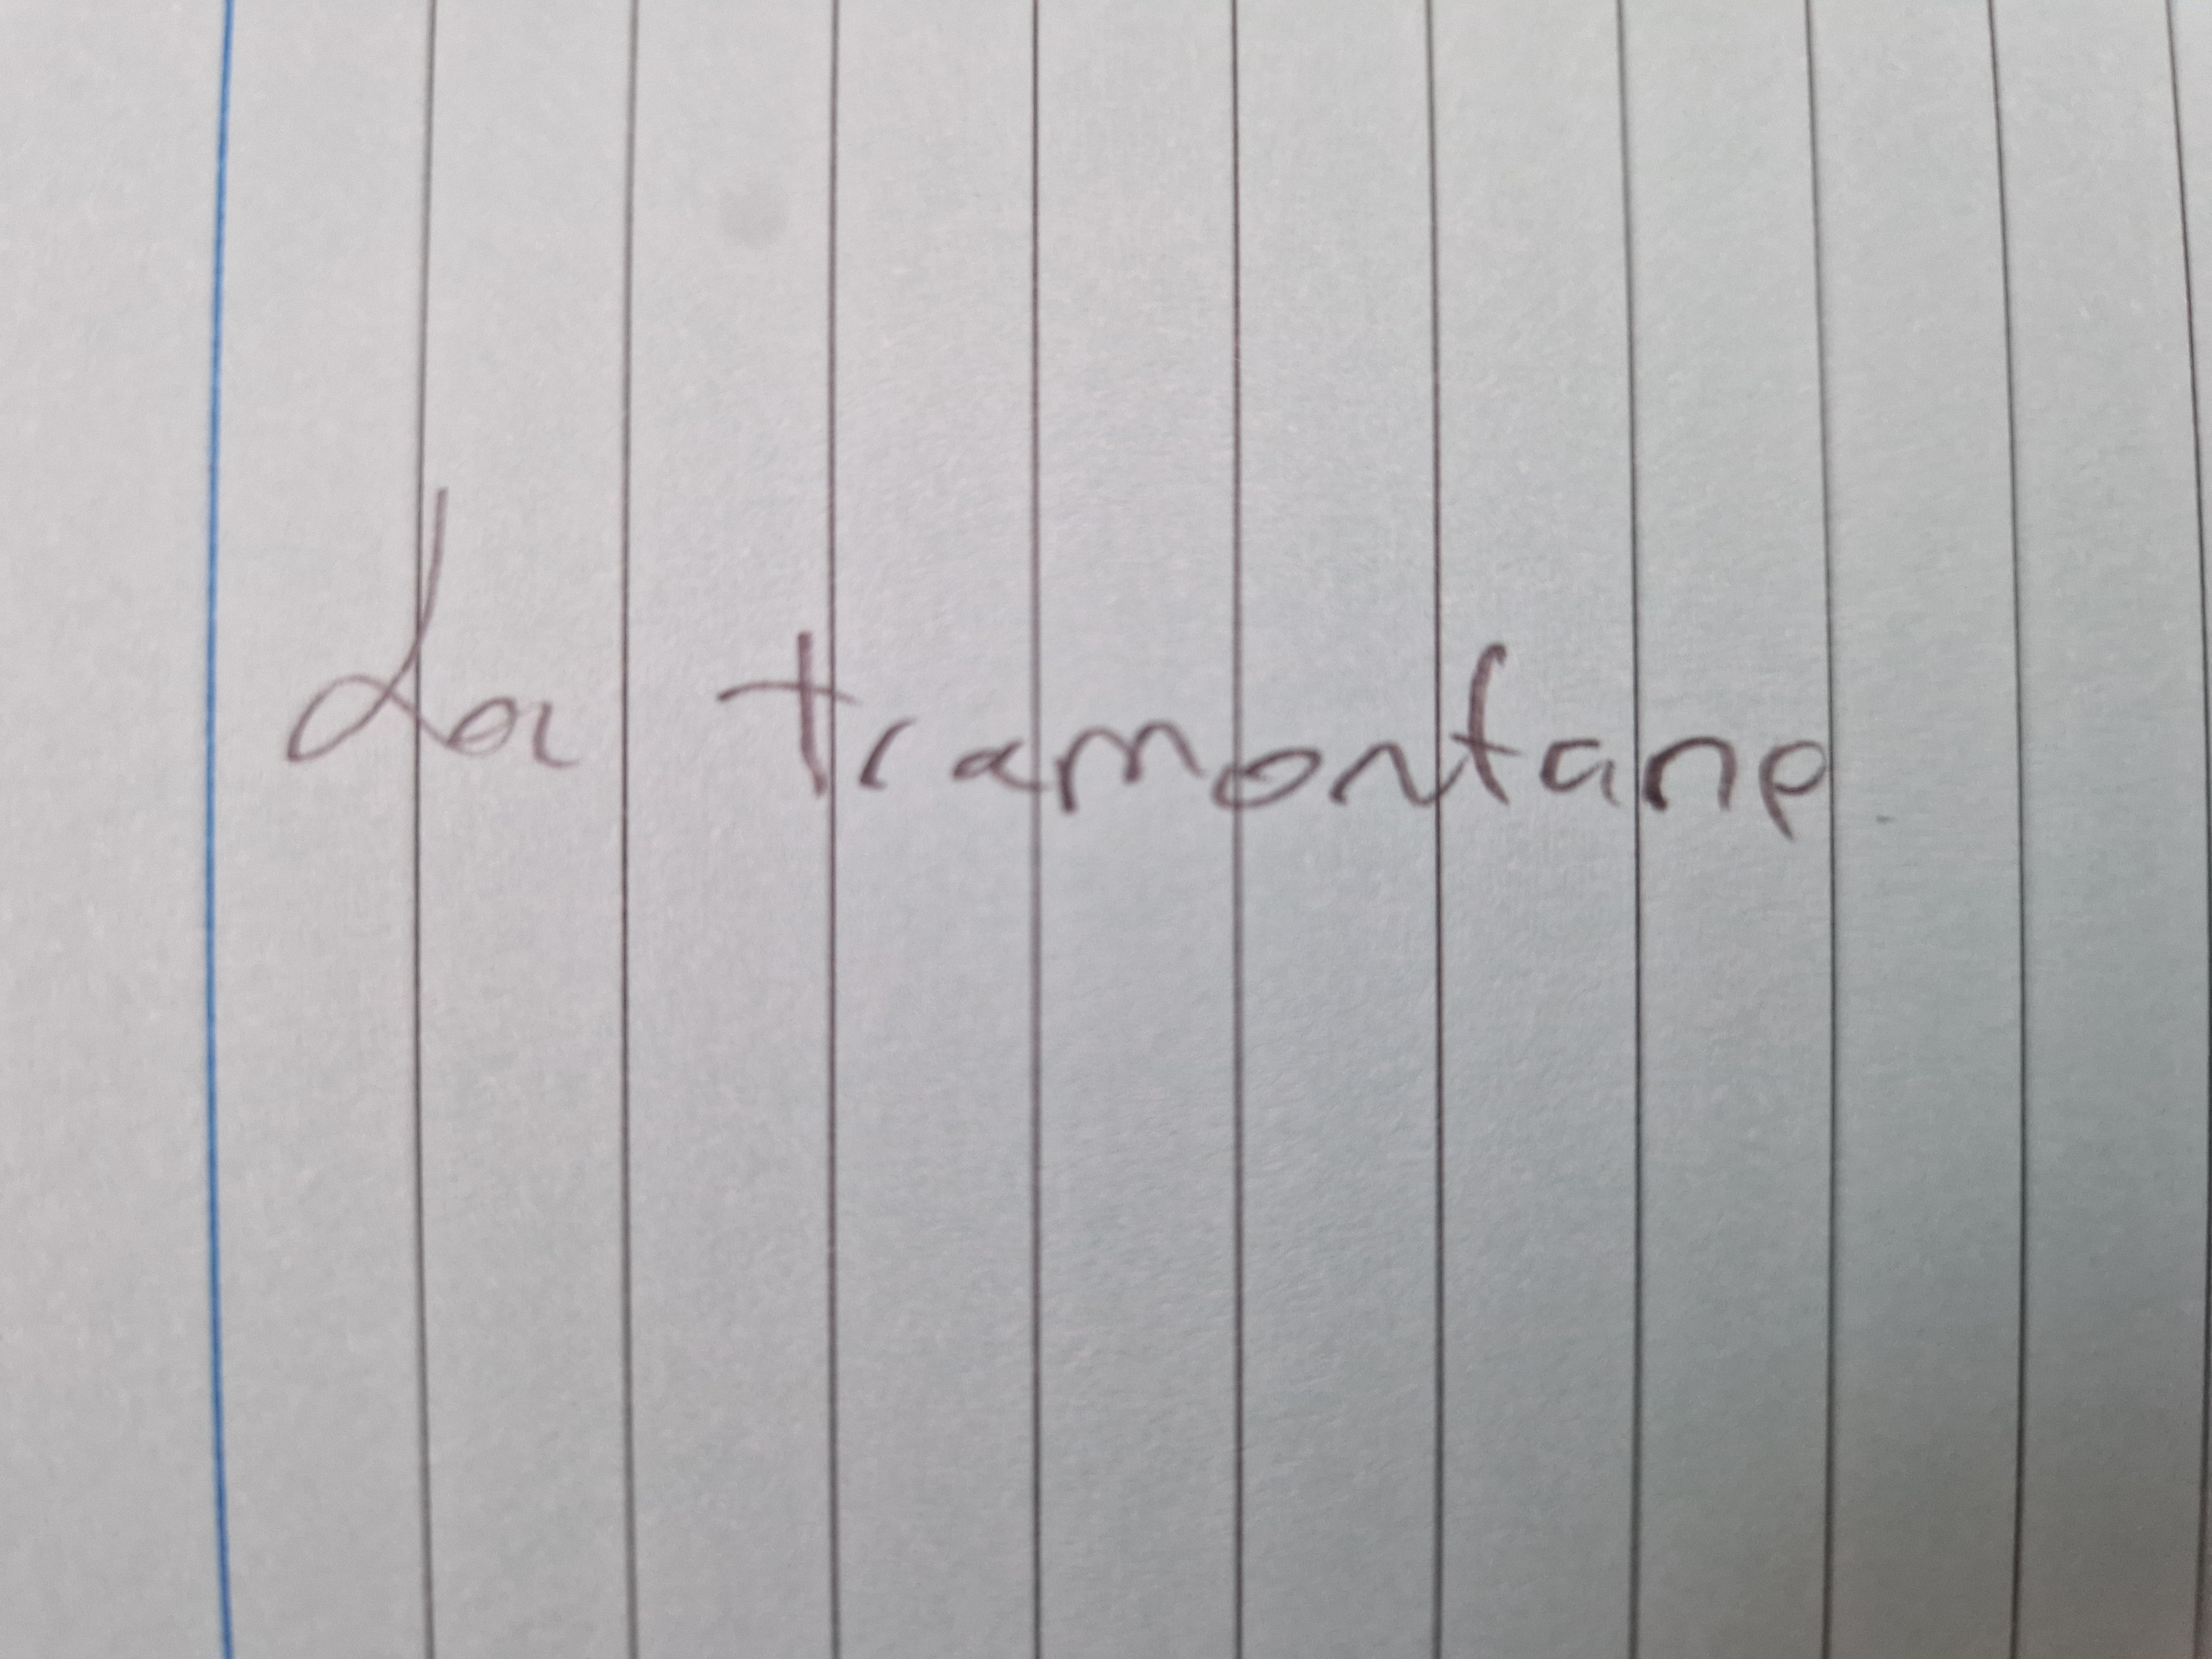 La tramontane